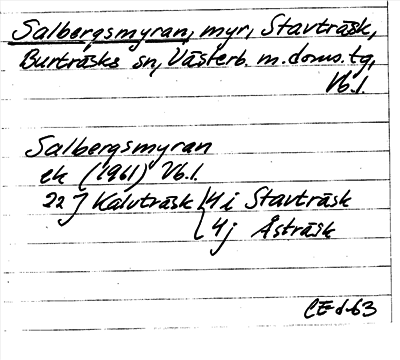 Salbergsmyran, myr, Stavträsk,
Burträsks sn, Västerb. m. doms. tg,
Vb. l.
Salbergsmyran
ek (1961) Vb. l.
22 J Kalvträsk 4 i Stavträsk
4 j Åsträsk
CE d. 63